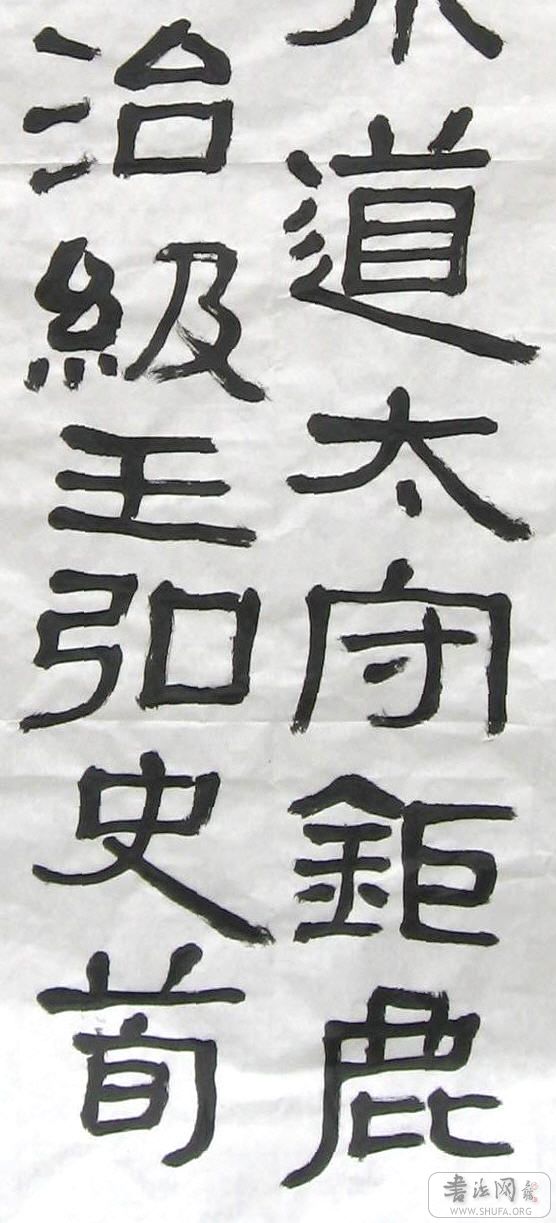 道太守鉅鹿
治級王弘史荀
書法网
WWW.SHUFA.ORG